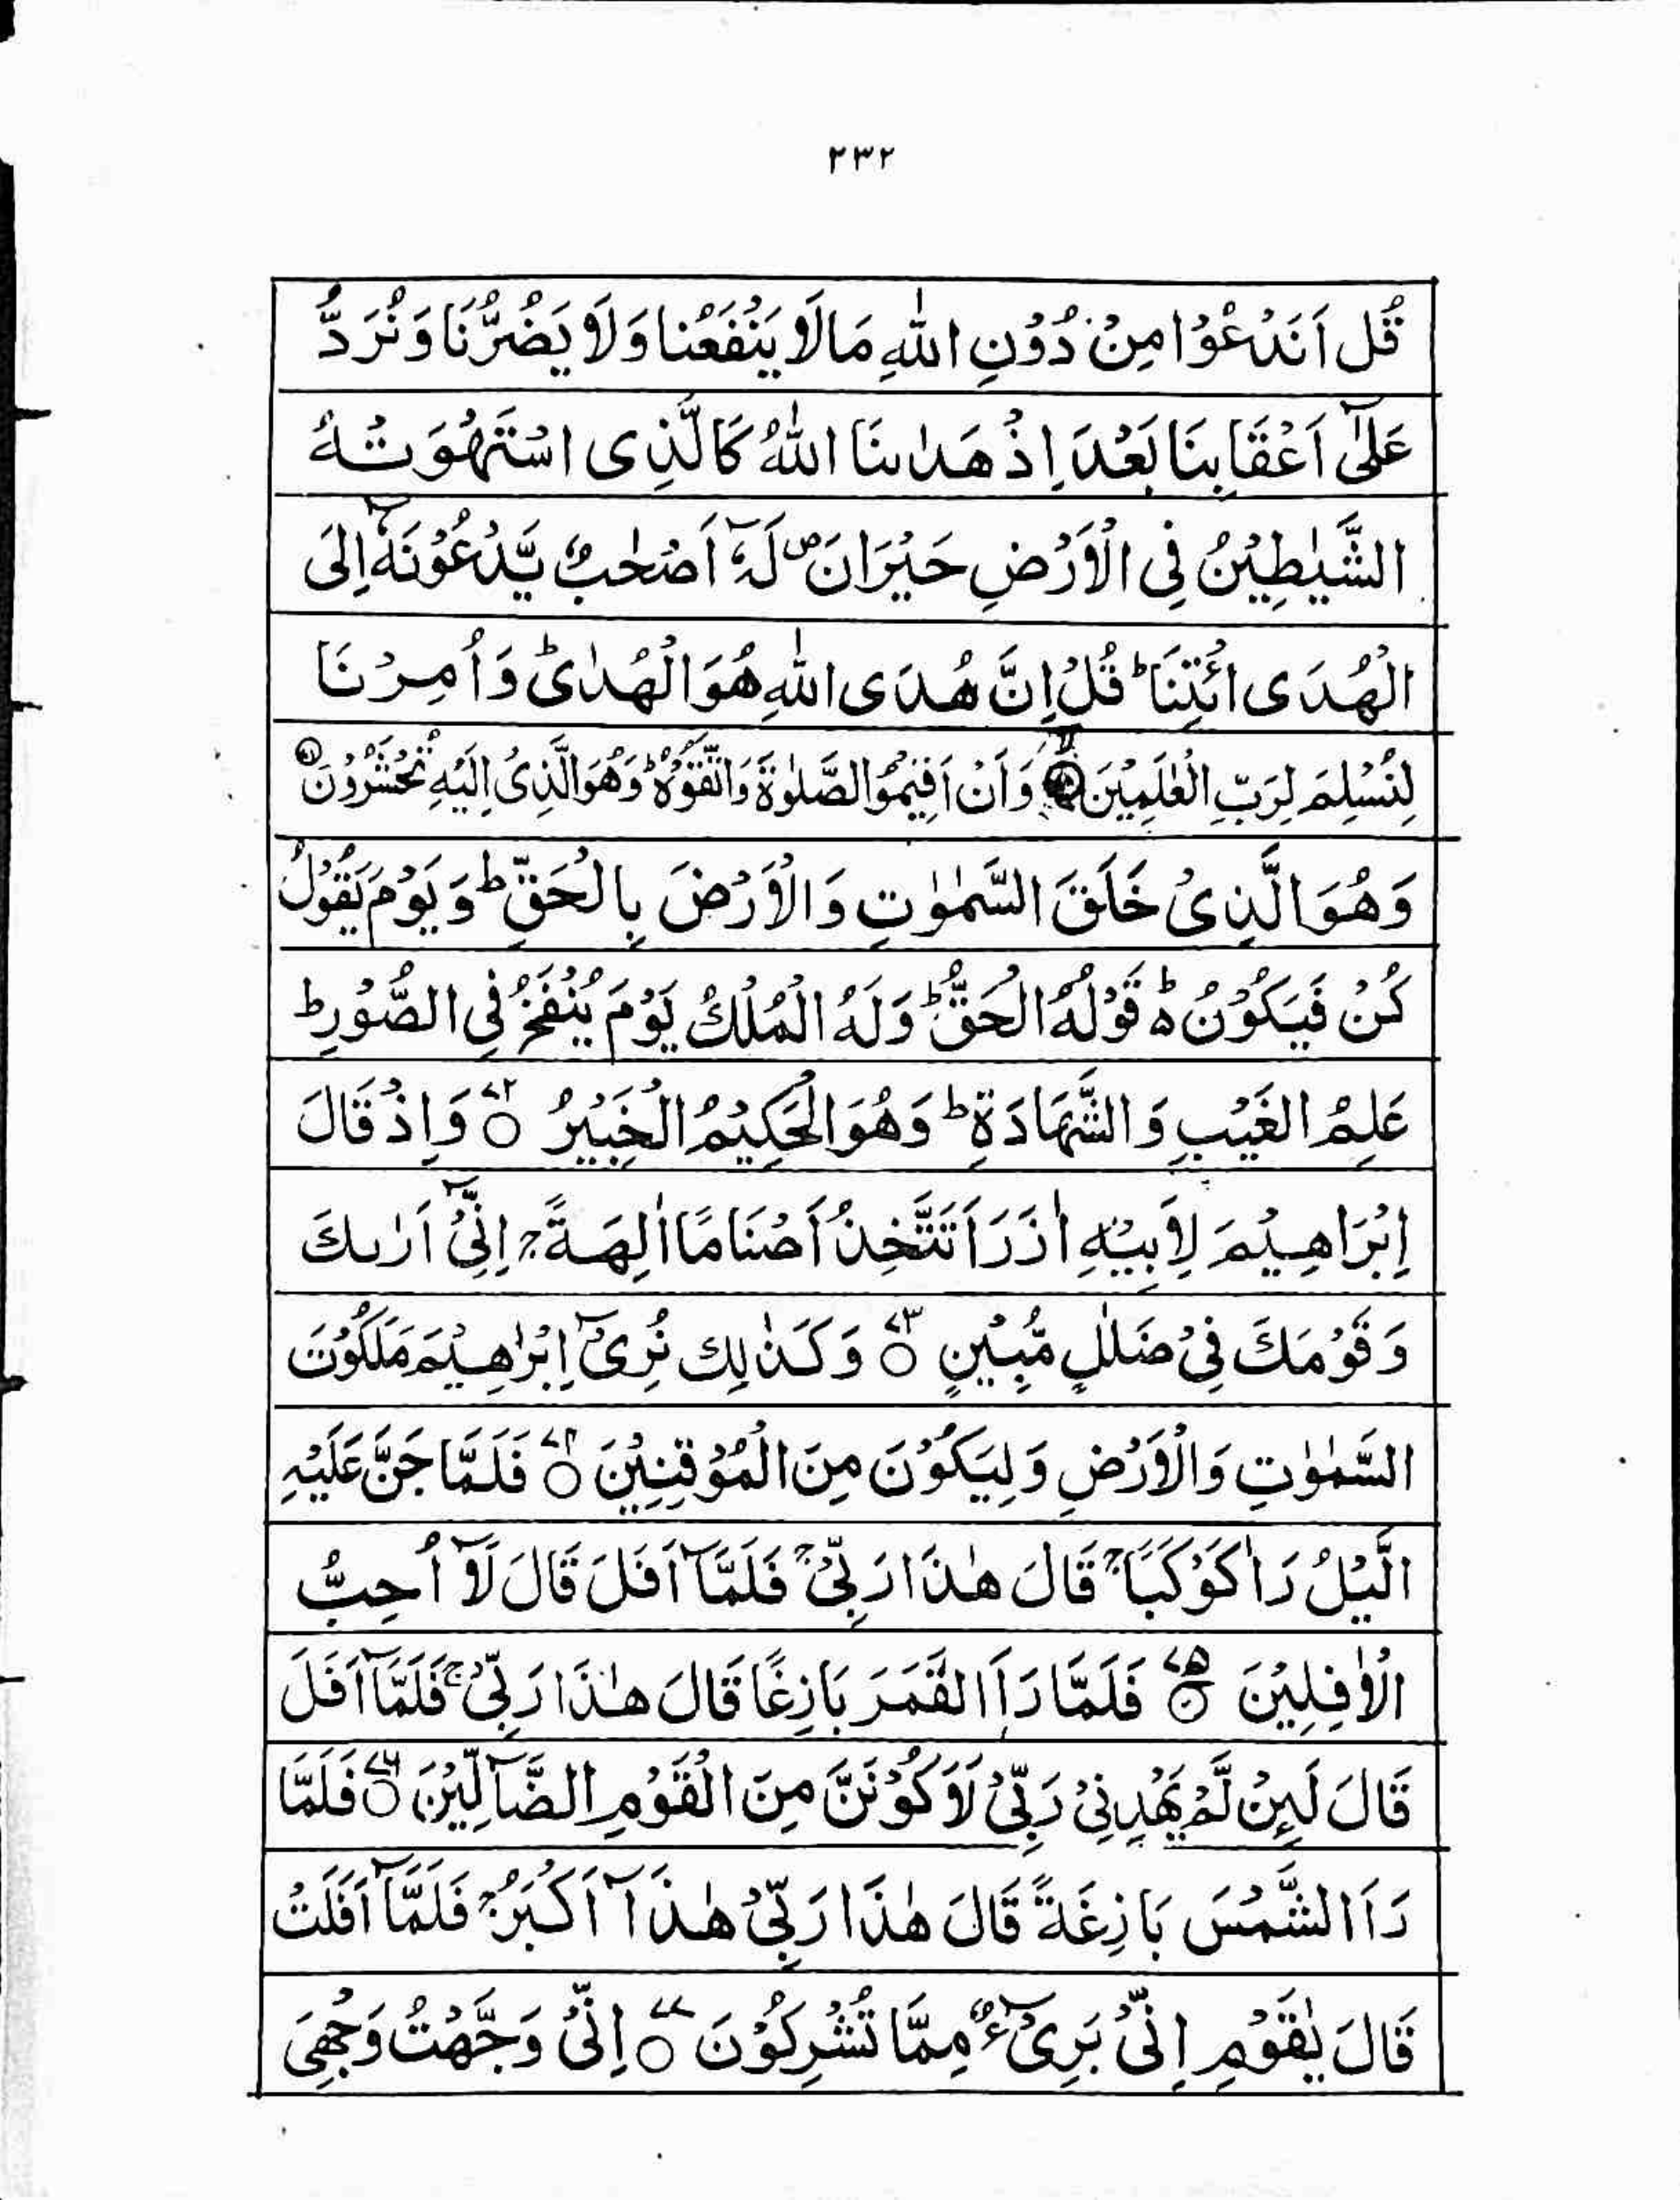 ۲۳۲
قُل اَنَدْعُوْا مِنْ دُوْنِ اللّٰهِ مَالَا يَنْفَعُنا وَلَا يَضُرُّنَا وَنُرَدُّ
عَلٰٓى اَعْقَابِنَا بَعْدَ اِذْ هَدٰىنَا اللّٰهُ كَالَّذِى اسْتَهْوَتْهُ
الشَّيٰطِيْنُ فِى الْاَرْضِ حَيْرَانَ ص لَهٗٓ اَصْحٰبٌ يَّدْعُوْنَهٗٓ اِلَى
الْهُدَى ائْتِنَا ط قُلْ اِنَّ هُدَى اللّٰهِ هُوَ الْهُدٰى ط وَاُمِرْنَا
لِنُسْلِمَ لِرَبِّ الْعٰلَمِيْنَ ۝۷۱ لا وَاَنْ اَقِيْمُوا الصَّلٰوةَ وَاتَّقُوْهُ ط وَهُوَ الَّذِىْ اِلَيْهِ تُحْشَرُوْنَ
وَهُوَ الَّذِىْ خَلَقَ السَّمٰوٰتِ وَالْاَرْضَ بِالْحَقِّ ط وَيَوْمَ يَقُوْلُ
كُنْ فَيَكُوْنُ ۵ ط قَوْلُهُ الْحَقُّ ط وَلَهُ الْمُلْكُ يَوْمَ يُنْفَخُ فِى الصُّوْرِ ط
عٰلِمُ الْغَيْبِ وَالشَّهَادَةِ ط وَهُوَ الْحَكِيْمُ الْخَبِيْرُ ۝۷۲ وَاِذْ قَالَ
اِبْرَاهِيْمَ لِاَبِيْهِ اٰذَرَ اَتَتَّخِذُ اَصْنَامًا اٰلِهَةً ج اِنِّىْٓ اَرٰىكَ
وَقَوْمَكَ فِىْ ضَلٰلٍ مُّبِيْنٍ ۝۷۳ وَكَذٰلِك نُرِىْٓ اِبْرٰهِيْمَ مَلَكُوْتَ
السَّمٰوٰتِ وَالْاَرْضِ وَلِيَكُوْنَ مِنَ الْمُوْقِنِيْنَ ۝۷۴ فَلَمَّا جَنَّ عَلَيْهِ
الَّيْلُ رَاٰ كَوْكَبًا ج قَالَ هٰذَا رَبِّىْ ج فَلَمَّآ اَفَلَ قَالَ لَآ اُحِبُّ
الْاٰفِلِيْنَ ۝۷۵ فَلَمَّا رَاَ الْقَمَرَ بَازِغًا قَالَ هٰذَا رَبِّىْ ج فَلَمَّآ اَفَلَ
قَالَ لَىِٕنْ لَّمْ يَهْدِنِىْ رَبِّىْ لَاَكُوْنَنَّ مِنَ الْقَوْمِ الضَّآلِّيْنَ ۝۷۶ فَلَمَّا
رَاَ الشَّمْسَ بَازِغَةً قَالَ هٰذَا رَبِّىْ هٰذَآ اَكْبَرُ ج فَلَمَّآ اَفَلَتْ
قَالَ يٰقَوْمِ اِنِّىْ بَرِىْٓءٌ مِمَّا تُشْرِكُوْنَ ۝۷۷ اِنِّىْ وَجَّهْتُ وَجْهِىَ